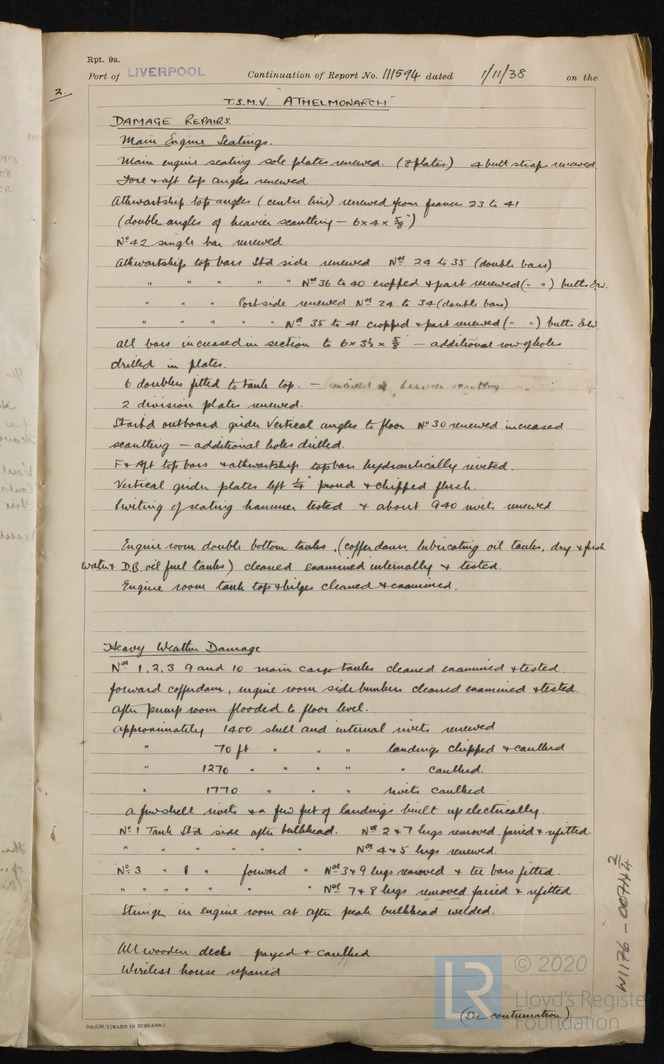 Rpt. 9a.
Port of LIVERPOOL Continuation of Report No. 111594 dated 1/11/38 on the
2.
T.S.M.V. "ATHELMONARCH"
DAMAGE REPAIRS.
Main Engine Seatings.
Main engine seating sole plates renewed. (8 plates) 4 butt straps renewed.
Fore & aft top angles renewed.
Athwartship top angles (centre line) renewed from frames 23 to 41
(double angles of heavier scantling – 6 x 4 x 5/8")
No 42 single bar renewed
Athwartship top bars Std side renewed Nos 24 to 35 (double bars)
" " " " " Nos 36 to 40 cropped & part renewed (" ") butts E.W.
" " " Port side renewed Nos 24 to 34 (double bars)
" " " " " Nos 35 to 41 cropped & part renewed (" ") butts E.W.
all bars increased in section to 6 x 3½ x 5/8 – additional row of holes
drilled in plates.
6 doublers fitted to tank top. – heavier scantling
2 division plates renewed.
Starbd outboard girder vertical angles to floor No 30 renewed increased
scantling – additional holes drilled.
F & Aft top bars & athwartship top bars hydraulically riveted.
Vertical girder plates left ¼" proud & chipped flush.
Riveting of seating hammer tested & about 940 rivets renewed
Engine room double bottom tanks, (cofferdams, lubricating oil tanks, dry & fresh
water & D.B. oil fuel tanks) cleaned examined internally & tested.
Engine room tank top & bilges cleaned & examined.
Heavy Weather Damage
Nos 1, 2, 3 9 and 10 main cargo tanks cleaned examined & tested.
forward cofferdam, engine room side bunkers cleaned examined & tested.
After pump room flooded to floor level.
approximately 1400 shell and internal rivets renewed
" 70 ft " " " landings chipped & caulked
" 1270 " " " " caulked.
" 1770 " " " rivets caulked
A few shell rivets & a few feet of landings built up electrically.
No 1 Tank Std side after bulkhead. Nos 2 & 7 lugs removed faired & refitted
" " " " " " Nos 4 & 5 lugs renewed.
No 3 " P " forward " Nos 3 & 9 lugs removed & tee bars fitted.
" " " " " " Nos 7 & 8 lugs removed faired & refitted
Stringer in engine room at after peak bulkhead welded.
All wooden decks payed & caulked
Wireless house repaired
(See continuation)
W1176-0074 2/4
© 2020
LR
Lloyd's Register
Foundation